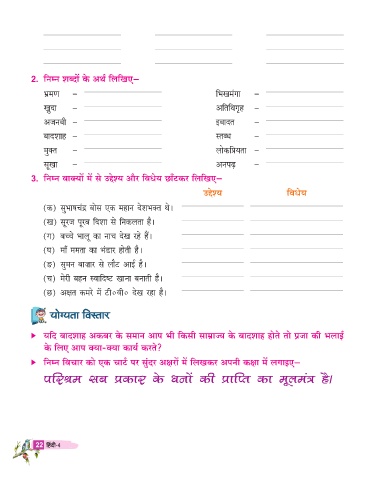 2. निम्न शब्दों के अर्थ लिखिए–
भ्रमण – भिखमंगा –
खुदा – अतिथिगृह –
अजनबी – इबादत –
बादशाह – स्तब्ध –
मुक्त – लोकप्रियता –
सूखा – अनपढ़ –
3. निम्न वाक्यों में से उद्देश्य और विधेय छाँटकर लिखिए–
उद्देश्य विधेय
(क) सुभाषचंद्र बोस एक महान देशभक्त थे।
(ख) सूरज पूरब दिशा से निकलता है।
(ग) बच्चे भालू का नाच देख रहे हैं।
(घ) माँ ममता का भंडार होती है।
(ङ) सुमन बाजार से लौट आई है।
(च) मेरी बहन स्वादिष्ट खाना बनाती है।
(छ) अक्षत कमरे में टी०वी० देख रहा है।
योग्यता विस्तार
यदि बादशाह अकबर के समान आप भी किसी साम्राज्य के बादशाह होते तो प्रजा की भलाई
के लिए आप क्या-क्या कार्य करते?
निम्न विचार को एक चार्ट पर सुंदर अक्षरों में लिखकर अपनी कक्षा में लगाइए–
परिश्रम सब प्रकार के धनों की प्राप्ति का मूलमंत्र है।
22 हिंदी-4